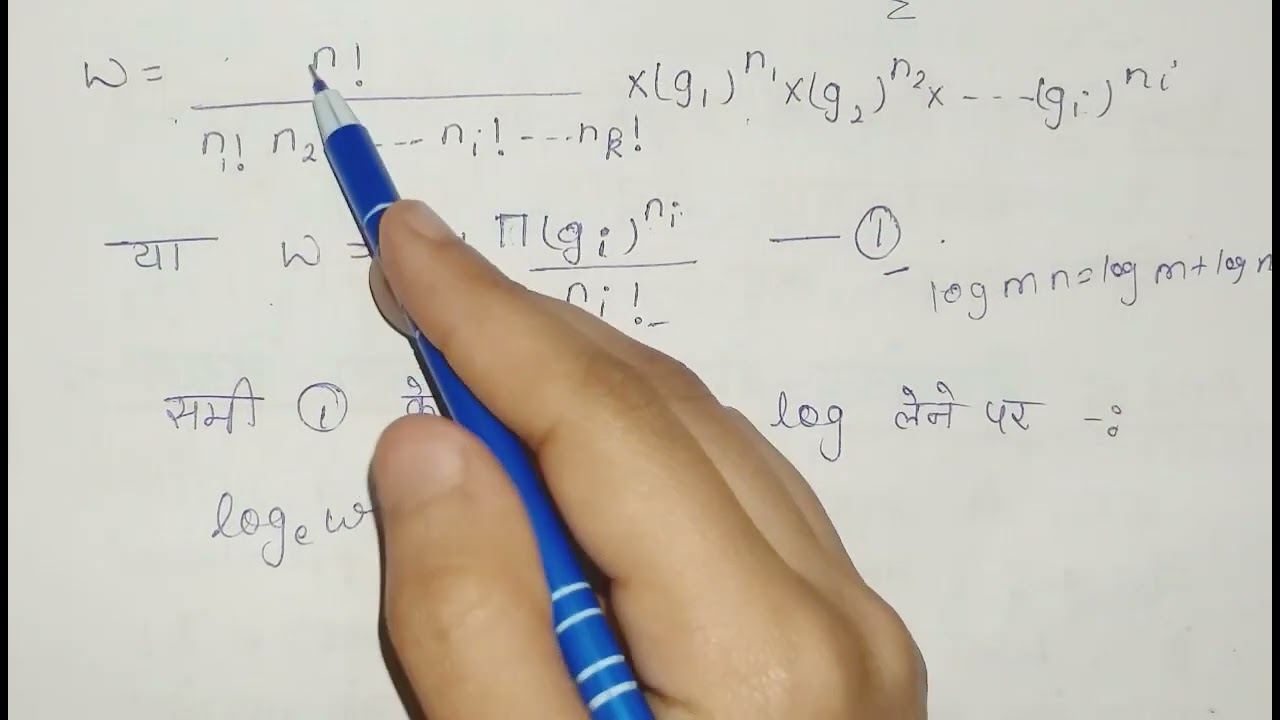 Σ
w = n! / n₁! n₂ ---- nᵢ! ---nk! ×(g₁)^n₁ ×(g₂)^n₂ × ----(gᵢ)^nᵢ
या w = Π (gᵢ)^nᵢ / nᵢ! — ①
log m n = log m + log n
समी ① के log लेने पर -:
logₑ w